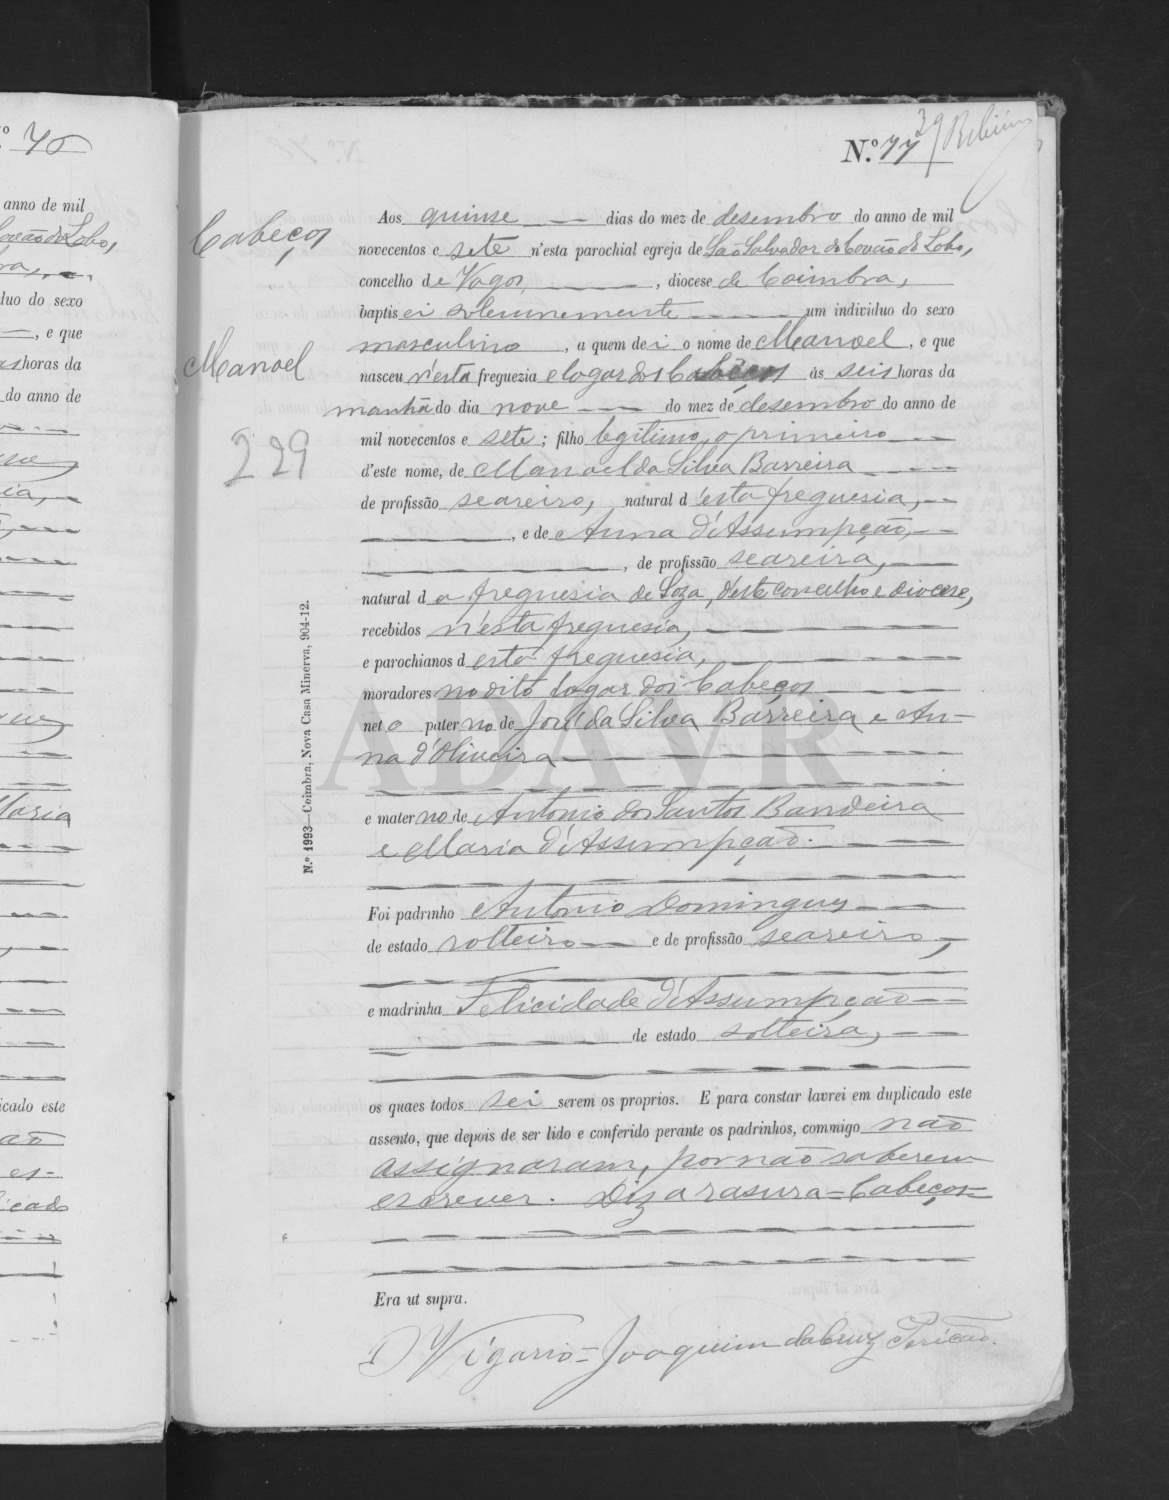 N.º 77
39
Aos quinse dias do mez de desembro do anno de mil
novecentos e sete n'esta parochial egreja de São Salvador do Covão do Lobo,
concelho de Vagos, diocese de Coimbra,
baptisei solemnemente um individuo do sexo
masculino, a quem dei o nome de Manoel, e que
nasceu n'esta freguezia e logar dos Cabêços ás seis horas da
manhã do dia nove do mez de desembro do anno de
mil novecentos e sete; filho legitimo, o primeiro
d'este nome, de Manoel da Silva Barreira
de profissão seareiro, natural d'esta freguesia,
, e de Anna d'Assumpção,
, de profissão seareira,
natural da freguesia de Soza, d'este concelho e diocese,
recebidos n'esta freguesia,
e parochianos d'esta freguesia,
moradores no dito logar dos Cabeços
neto paterno de José da Silva Barreira e An-
na d'Oliveira
e materno de Antonio dos Santos Bandeira
e Maria d'Assumpção.
Foi padrinho Antonio Domingues
de estado solteiro e de profissão seareiro,
e madrinha Felicidade d'Assumpção
de estado solteira,
os quaes todos sei serem os proprios. E para constar lavrei em duplicado este
assento, que depois de ser lido e conferido perante os padrinhos, commigo não
assignaram, por não saberem
escrever. Diz a rasura=Cabeços=
Era ut supra.
O Vigario=Joaquim da Cruz
Cabeços
Manoel
229
N.º 1993—Coimbra, Nova Casa Minerva, 904-12.
ADAVR
anno de mil
duo do sexo
, e que
horas da
do anno de
Maria
icado este